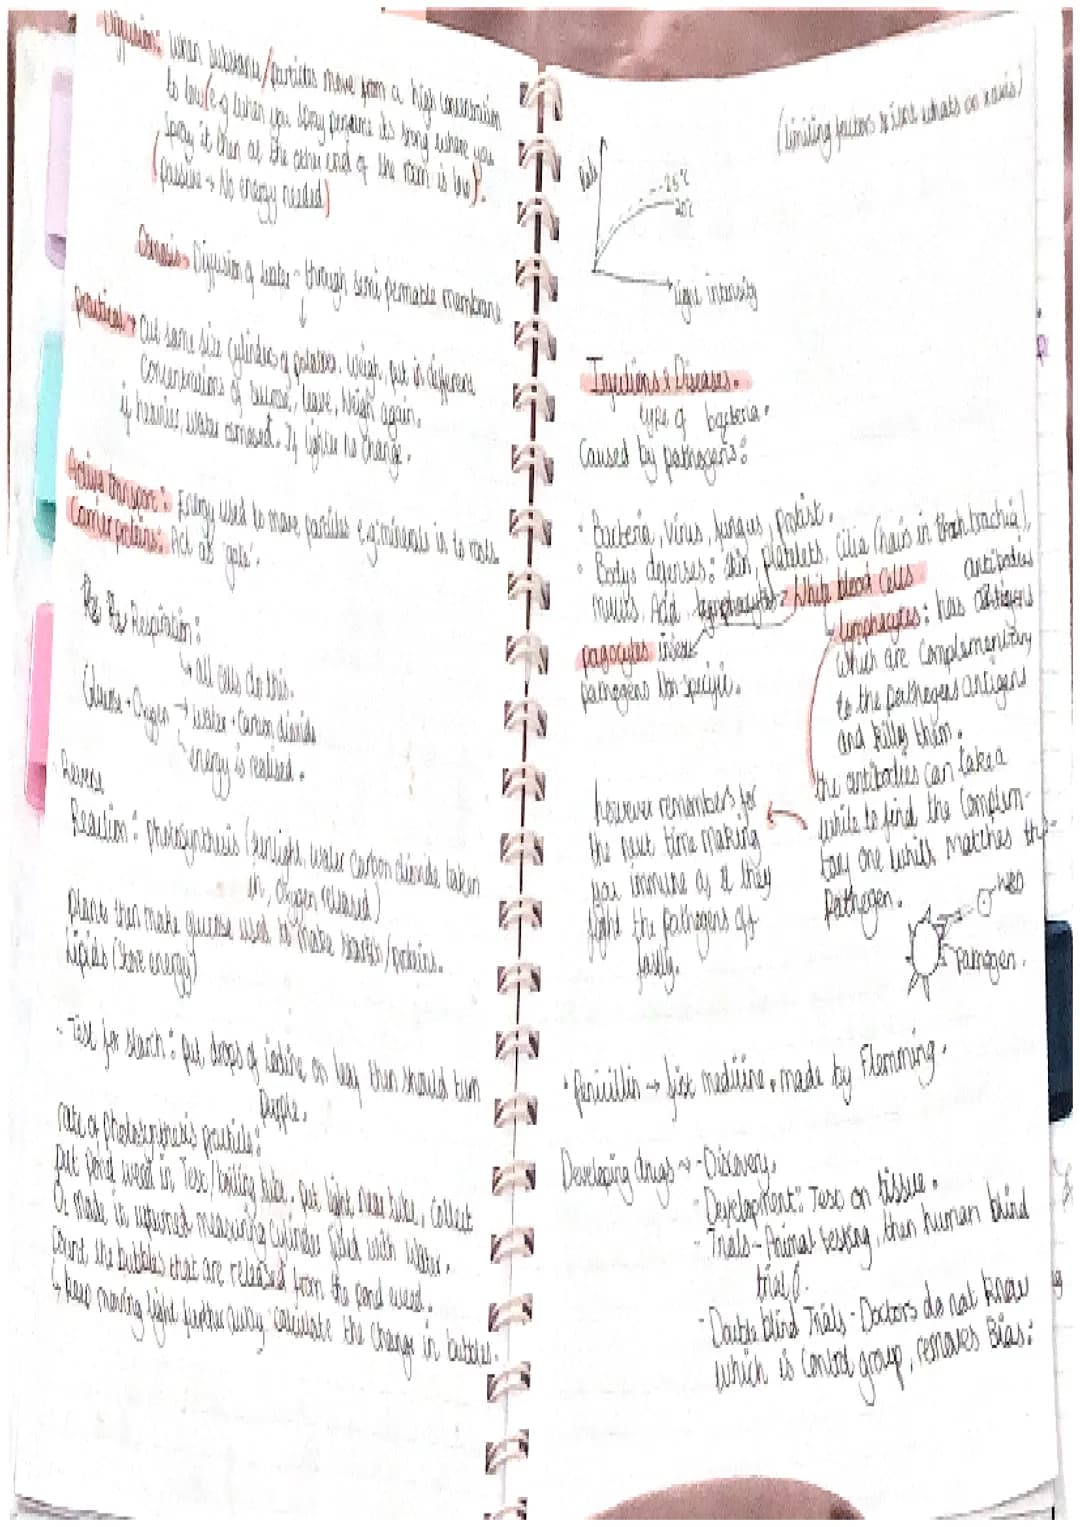 Diffusion: When substance/particles move from a high concentration
to low (e.g when you spray perfume its strong where you
spray it then at the other end of the room is low).
(passive → No energy needed)
Osmosis → Diffusion of water - through semi permable membrane
↓
practical → Cut same size cylinders of potatoes, weigh, put in different
Concentrations of sucrose, leave, weigh again.
if heavier, water osmosed. If lighter no change.
Active transport: Energy used to move particles e.g minerals in to roots.
Carrier proteins: Act as 'gate'.
Respiration:
↳ all cells do this.
Glucose + Oxygen → water + Carbon dioxide
↳ energy is realised.
Revers
Reaction: photosynthesis (sunlight, water carbon dioxide taken
in, oxygen released)
plants then make glucose used to make starch/proteins.
Lipids (Store energy)
· Test for starch: put drops of iodine on leaf then should turn
Purple.
rate of photosynthesis practicle:
put Pond weed in Test/boiling tube. put light near tube, Collect
O₂ Made in upturned measuring cylinder filled with water.
Count the bubbles that are released from the pond weed.
↳ keep moving light further away, calculate the change in bubbles.
(limiting factors isnt whats on x axis)
Rate
25°C
20°C
light intensity
Infections & Diseases.
type of bacteria.
Caused by pathogens:
· Bacteria, virus, fungus, protist.
· Bodys defenses: skin, platelets, cilia (hairs in trachia),
mucus, Acid, lymphocytes = White blood Cells
pagocytes
pathogens Non-specific.
antibodies
lymphocytes: has antigens
which are Complementry
to the pathogens antigens
and kills them.
the antibodies can take a
while to find the Complem-
tary one which matches the
Pathogen.
however remembers for
the next time making
you immune as they
fight the pathogens off
fastly.
Pathogen.
· Penicillin → first medicine, made by Flemming.
Developing drugs → - Discovery.
- Development: Test on tissue.
- Trials - Animal testing, then human blind
trial.
- Double blind Trials - Doctors do not know
which is Control group, removes Bias.